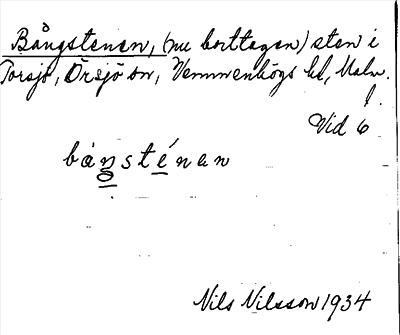 Bångstenen, (nu borttagen) sten i
Torsjö, Örsjö sn, Vemmenhögs hd, Malm.
l.
Vid 6
bånsténan
Nils Nilsson 1934